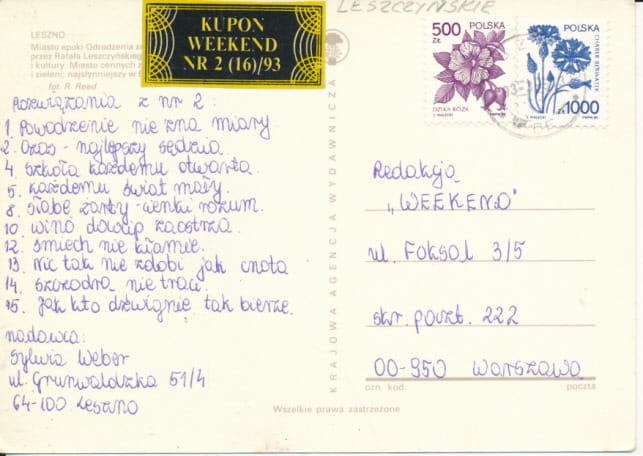 LESZCZYŃSKIE
LESZNO
Miasto epoki Odrodzenia
przez Rafała Leszczyńskiego
i kultury. Miasto cennych
i zieleni; najsłynniejszy w
fot. R. Reed
KUPON
WEEKEND
NR 2 (16)/93
500 ZŁ
POLSKA
DZIKA RÓŻA
POLSKA
CHABER BŁAWATEK
1000
Rozwiązania z nr 2:
1. Powodzenie nie zna miary
2. Czas - najlepszy sędzia.
4. Szkoła każdemu otwarta.
5. każdemu świat mały.
8. słabe żarty - cienki rozum.
10. wino dowcip zaostrza.
12. śmiech nie kłamie.
13. Nic tak nie zdobi jak cnota
14. szczodra nie traci.
15. Jak kto dźwignie tak bierze.
nadawca:
Sylwia Weber
ul. Grunwaldzka 51/4
64-100 Leszno
KRAJOWA AGENCJA WYDAWNICZA
Redakcja
„WEEKEND"
ul. Foksal 3/5
skr. poczt. 222
00-950 Warszawa
ozn. kod. poczta
Wszelkie prawa zastrzeżone